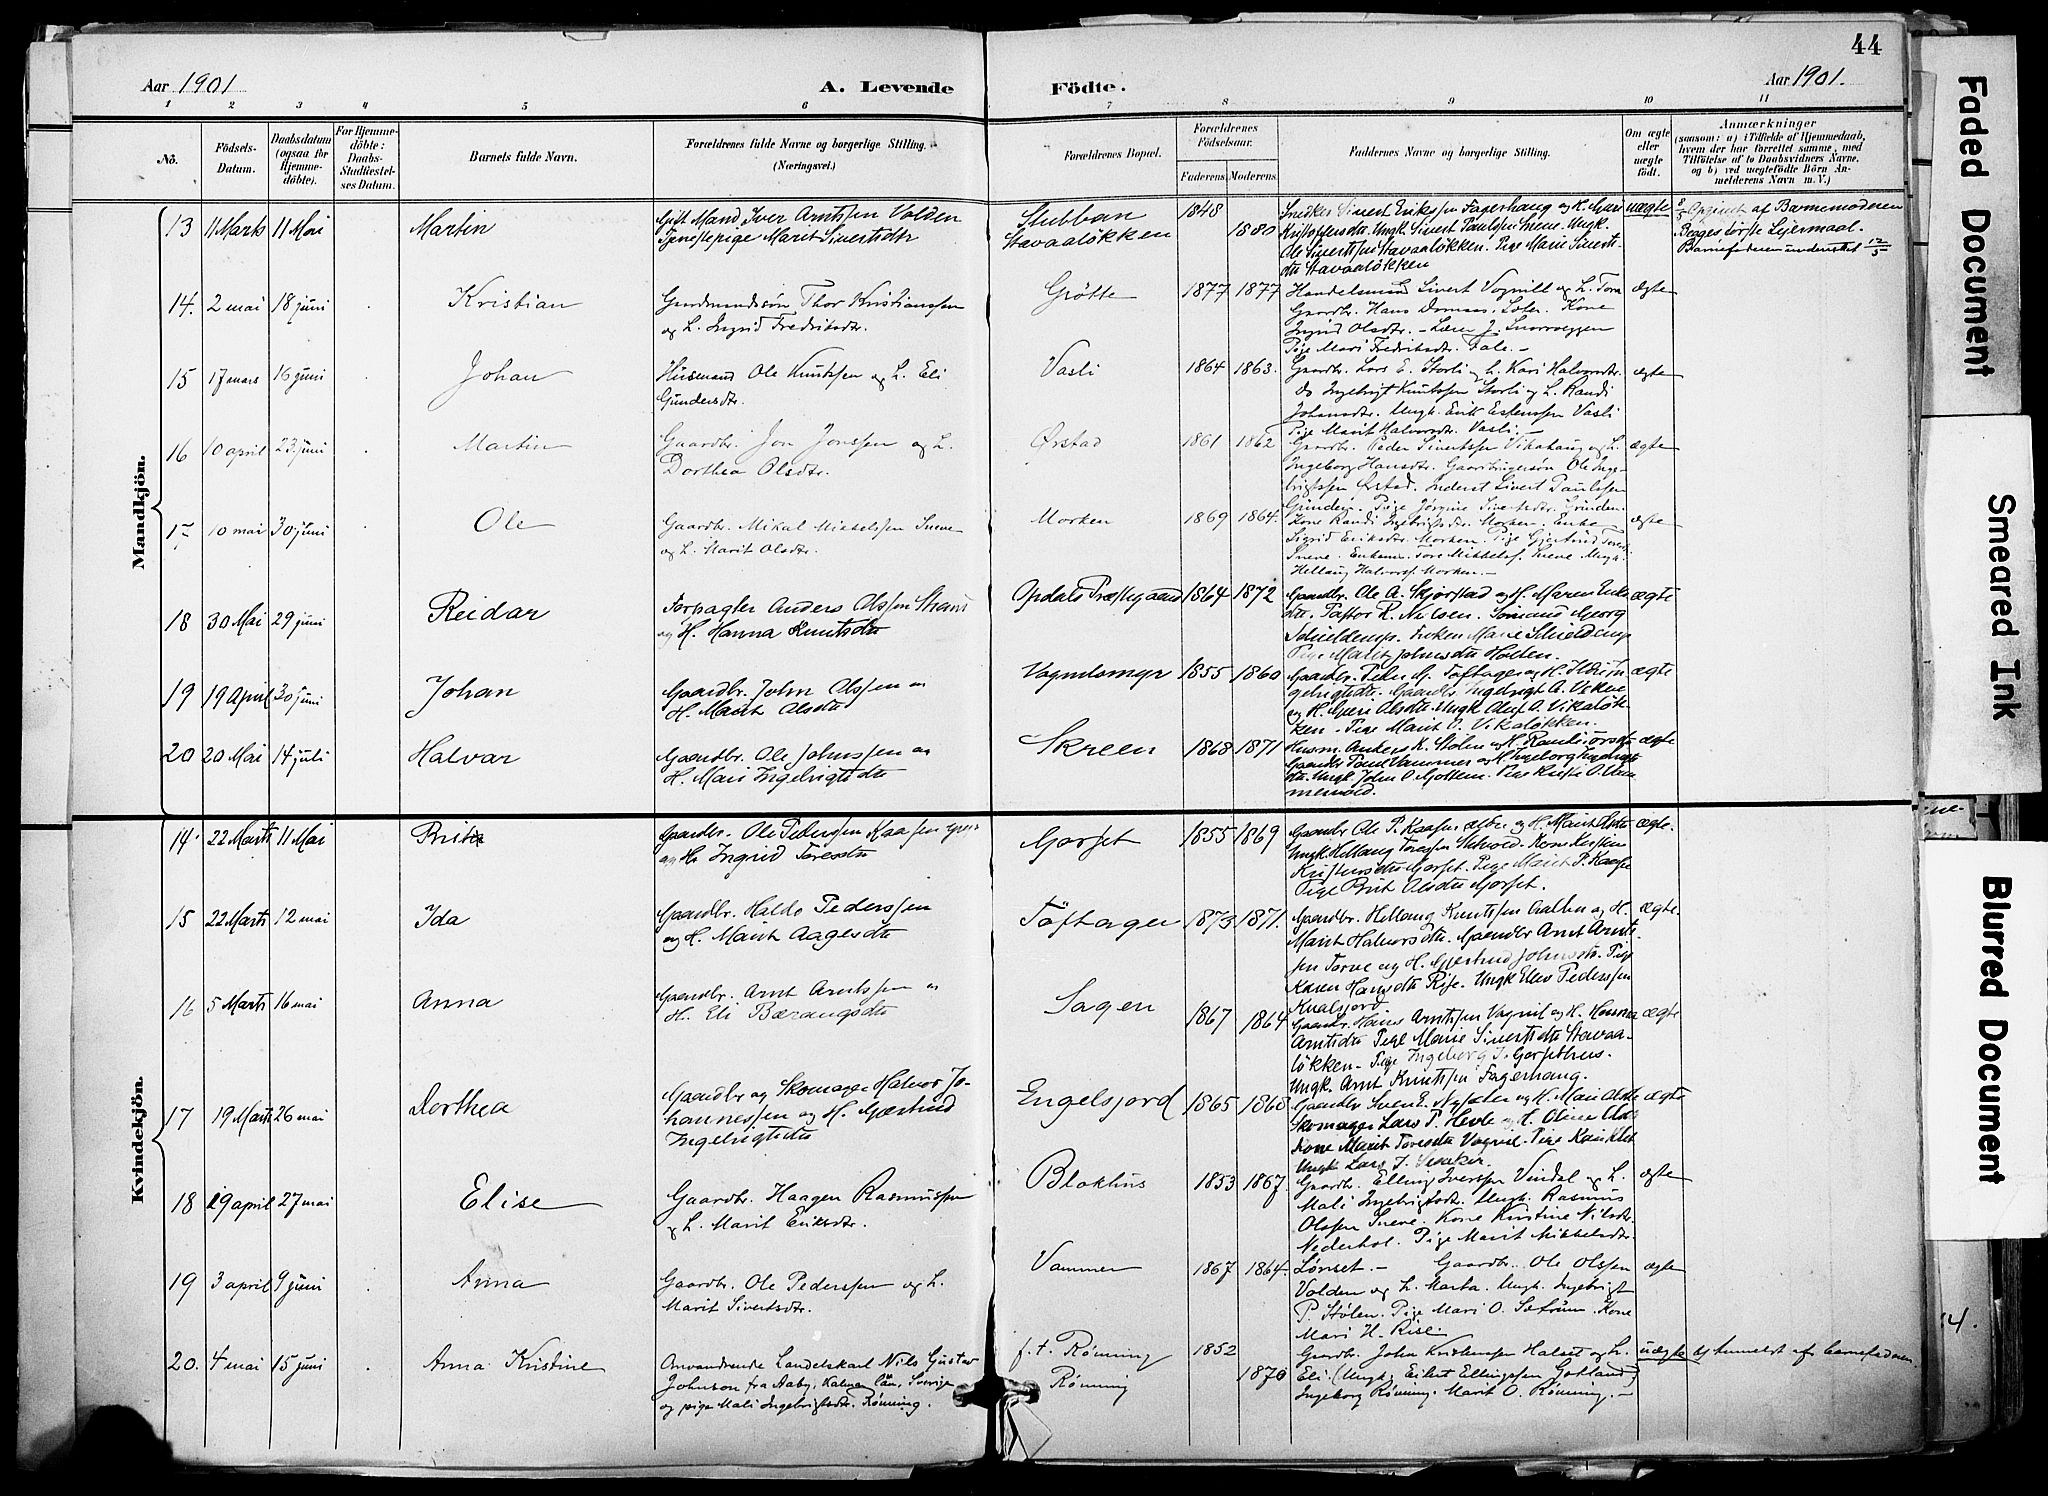 44
Aar 1901
A. Levende
Födte.
Aar 1901.
1 2 3 4 5 6 7 8 9 10 11
No.
Födsels-Datum.
Daabsdatum (ogsaa for Hjemme-döbte).
For Hjemme-döbte: Daabs-Stadfæstel-ses Datum.
Barnets fulde Navn.
Forældrenes fulde Navne og borgerlige Stilling.
(Næringsvei.)
Forældrenes Bopæl.
Forældrenes Födselsaar.
Faderens. Moderens.
Faddernes Navne og borgerlige Stilling.
Om ægte eller uægte födt.
Anmærkninger
(saasom: a) i Tilfælde af Hjemmedaab, hvem der har forrettet samme, med Tilföielse af to Daabsvidners Navne, og b) ved uægtefödte Börn An-melderens Navn m. V.)
Mandkjön.
13 11 Marts 11 Mai Martin
Gift Mand Iver Arntssen Volden
Tjenestepige Marit Sivertsdtr
Stubban
Stavaaløkken
1848
1880
Snedker Sivert Erikssen Fagerhaug og H. Mari
Kristoffersdtr. Ungk. Sivert Paulssen Snene. Ungk.
Ole Sivertssen Stavaaløkken. Pige Marie Siverts-
dtr Stavaaløkken
uægte
af Barnemoderen
Begges første Leiermaal.
Barnefaderen underrettet 12/5
14. 2 mai 18 juni Kristian
Gaardmandssøn Thor Kristianssen
og h. Ingrid Fredriksdtr.
Grötte
1877 1877
Handelsmand Sivert Vognill og h. Tora
Gaardbr. Hans Domaas. Loler. Kone
Ingrid Olsdtr. - Lærer J. Snoeveggen
Pige Mari Fredriksdtr. Fale. -
ægte
15 17 mars 16 juni Johan
Husmand Ole Knutssen og h. Eli
Gundersdtr.
Vasli
1864 1863.
Gaardbr. Lars E. Storli og h. Kari Halvorsdtr.
do Ingebrigt Knutssen Storli og h. Randi
Johansdtr. Ungk. Erik Estenssen Vasli
Pige Marit Halvorsdtr. Vasli. -
ægte
16 10 april 23 juni Martin
Gaardbr. Jon Jonssen og h.
Dorthea Olsdtr.
Ørstad
1861 1862
Gaardbr. Peder Sivertssen Vikahaug og h.
Ingeborg Hansdtr. Gaardbrugersøn Ole Inge-
brigtssen Ørstad. Inderst Sivert Paulssen
Grinden. Pige Jørgine Sivertsdtr. Grinden.
ægte
17 10 mai 30 juni Ole
Gaardbr. Mikal Mikkelssen Sneve
og h. Marit Olsdtr.
Morken
1869 1864.
Kone Randi Ingebrigtsdtr. Morken. Enke
Sigrid Eriksdtr. Morken. Pige Gjertrud Tores.
Sneve. Enkem. Tore Mikkelsf. Sneve. Ungk.
Hellaug Halvorsf. Morken. -
ægte
18 30 Mai 29 juni Reidar
Forpagter Anders Olssen Strand
og H. Hanna Knutsdtr
Opdals Præstegaard
1864 1872
Gaardbr. Ole A. Skjørstad og H. Maren Erika
dtr. Pastor R. Nielsen. Sømand Georg
Schieldrup. Frøken Marie Schieldrup
Pige Marit Johnsdtr Holten.
ægte
19 19 April 30 juni Johan
Gaardbr. John Olssen og
H. Marit Olsdtr
Vognildsmyr
1855 1860
Gaardbr. Peder G. Toftager og H. Ildri In
gebrigtsdtr. Gaardbr. Ingebrigt A. Viken
og H. Guri Olsdtr. Ungk Oluf O. Vikaløk-
ken - Pige Marit O. Vikaløkken.
ægte
20 20 Mai 14 juli Halvar
Gaardbr. Ole Johnssen og
H. Mari Ingebrigtsdtr
Skreen
1868 1871
Husm. Anders K. Stolen og H. Randi
Gaardbr Paul Vammer og H. Ingeborg Ingebrigts
dtr. Ungk. John O. Gottem.
ægte
Kvindekjön.
14. 22 Marts 11 Mai Brit
Gaardbr. Ole Pederssen Kaasen
og H. Ingrid Toresdtr
Gorset
1855 1869
Gaardbr Ole P. Kaasen ældre og H. Marit Olsdtr
Ungk Hellaug Toressen Skevold. Kone Kirstine
Kristensdtr Gorset. Pige Marit P. Kaasen
Pige Brit Olsdtr Gorset.
ægte.
15 22 Marts 12 mai Ida
Gaardbr. Haldo Pederssen
og H. Marit Aagesdtr
Toftager
1873 1871.
Gaardbr. Hellaug Knutssen Aalbu og H.
Marit Halvorsdtr. Gaardbr Arnt Arnts-
sen Torve og H. Gjertrud Johnsdtr. Pige
Karen Hansdtr Rise. Ungk Elev Pederssen
ægte.
16 5 Marts 16 mai Anna
Gaardbr. Arnt Arntssen og
H. Eli Bærangsdtr
Sagen
1867 1864
Gaardbr. Hans Arntssen Vognil og H. Hanna
Arntsdtr Pige Marie Sivertsdtr Stavaa-
løkken - Pige Ingeborg J. Gorsethus.
Ungk. Arnt Knutssen Fagerhaug.
ægte
17 19 Marts 26 mai Dorthea
Gaardbr og Skomager Halvor Jo-
hannessen og H. Gjertrud
Ingebrigtsdtr
Engelsjord
1865 1868
Gaardbr Sven E. Nysæter og H. Mari Olsdtr
Skomager Lars P. Hevle og H. Oline
Kone Marit Toresdtr Vognil. Pige Kari
Ungk Lars J.
ægte
18 29 april 27 mai Elise
Gaardbr. Haagen Rasmussen
og h. Marit Eriksdtr.
Blokhus
1853 1867.
Gaardbr. Elling Iverssen Vindal og h.
Mali Ingebrigtsdtr. Ungk. Rasmus
Olssen Sneve. Kone Kristine Nilsdtr.
Nederhol. Pige Marit Mikkelsdtr.
ægte
19 3 april 9 juni Anna
Gaardbr. Ole Pederssen og h.
Marit Sivertsdtr.
Vammer
1867 1864.
Lønset. - Gaardbr. Ole Olssen
Volden og h. Marta. Ungk. Ingebrigt
P. Stølen. Pige Mari O. Sætrum. Kone
Mari H. Rise.
ægte
20. 4 mai 15 juni Anna Kristine
Omvandrende Landelskarl Nils Gustav
Johnson fra Aaby, Kalmar län, Sverige
og pige Mali Ingebrigtsdtr. Rønning.
f. t. Rønning
Rønning
1852
1870
Gaardbr. John Kristenssen Halset og h.
Eli. (Ungk. Eilert Ellingssen Gotland)
Ingeborg Rønning. Marit O. Rønning. -
uægte
anmeldt af barnefaderen.
Faded Document
Smeared Ink
Blurred Document